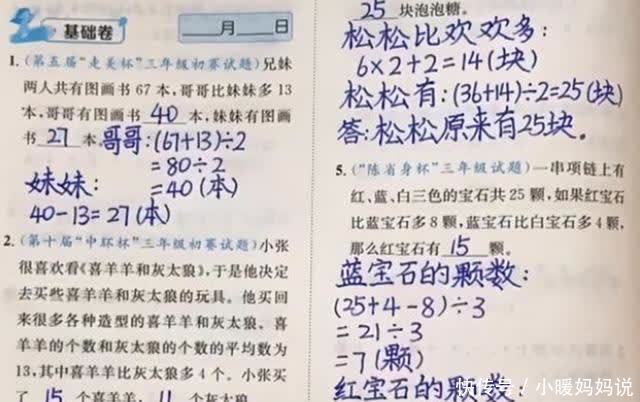 基础卷
____月____日
1.(第五届“走美杯”三年级初赛试题)兄妹
两人共有图画书 67 本,哥哥比妹妹多 13
本,哥哥有图画书 40 本,妹妹有图画
书 27 本.哥哥:(67+13)÷2
=80÷2
妹妹: =40(本)
40-13=27(本)
2.(第十届“中环杯”三年级初赛试题)小张
很喜欢看《喜羊羊和灰太狼》,于是他决定
去买些喜羊羊和灰太狼的玩具。他买回
来很多各种造型的喜羊羊和灰太狼、喜
羊羊的个数和灰太狼的个数的平均数为
13,其中喜羊羊比灰太狼多 4 个。小张买
了 15 个喜羊羊, 11 个灰太狼
25 块泡泡糖。
松松比欢欢多:
6×2+2=14(块)
松松有:(36+14)÷2=25(块)
答:松松原来有25块.
5.(“陈省身杯”三年级试题)一串项链上有
红、蓝、白三色的宝石共 25 颗,如果红宝石
比蓝宝石多 8 颗,蓝宝石比白宝石多 4 颗,
那么红宝石有 15 颗。
蓝宝石的颗数:
(25+4-8)÷3
=21÷3
=7(颗)
红宝石的颗数:
快传号 / 小暖妈妈说